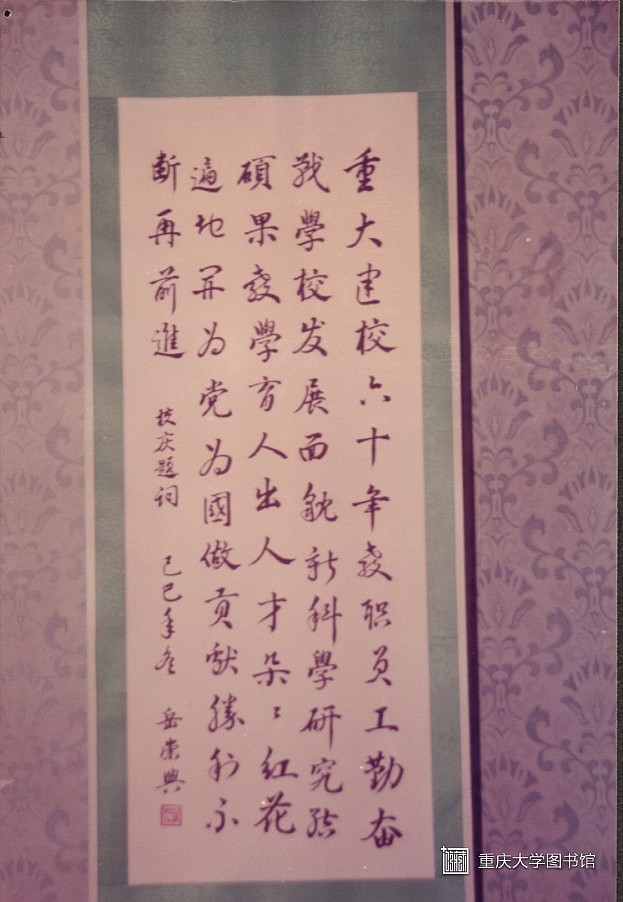 重大建校六十年教职员工勤奋
战學校发展面貌新科學研究结
碩果教學育人出人才朵〻红花
遍地开为党为國做贡献勝利不
断再前進
校庆题词
己巳年冬
岳崇興
重庆大学图书馆